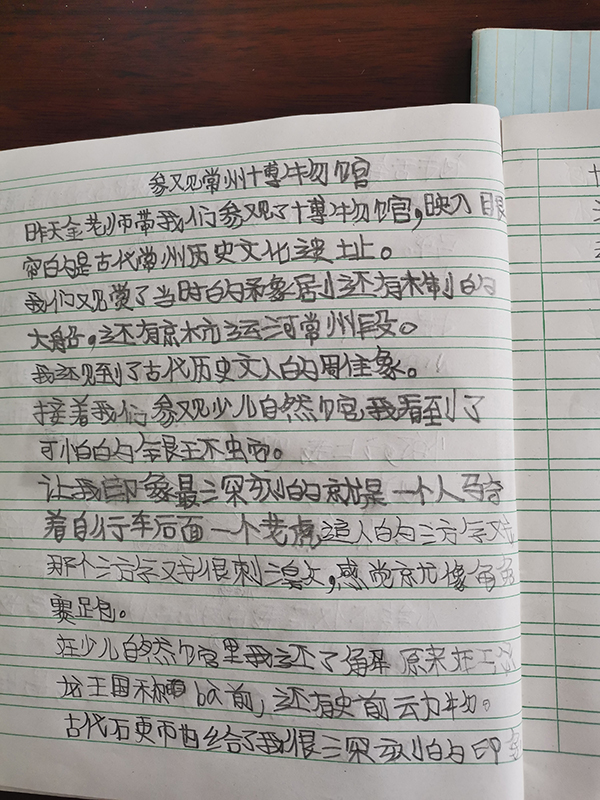 参观常州博物馆
昨天金老师带我们参观了博物馆,映入眼
帘的是古代常州历史文化遗址。
我们观赏了当时的和象居小还有木制的
大船。还有京杭运河常州段。
我还见到了古代历史文人的周住象。
接着我们参观少儿自然馆,我看到了
可怕的眼王不虫
让我印象最深刻的就是一个人骑
着自行车后面一个老虎追人的游戏
那个游戏很刺激,感觉就像
赛跑。
在少儿自然馆里我还了解 原来在
龙王国称 前,还有史前动物。
古代石 给了我很深刻的印象